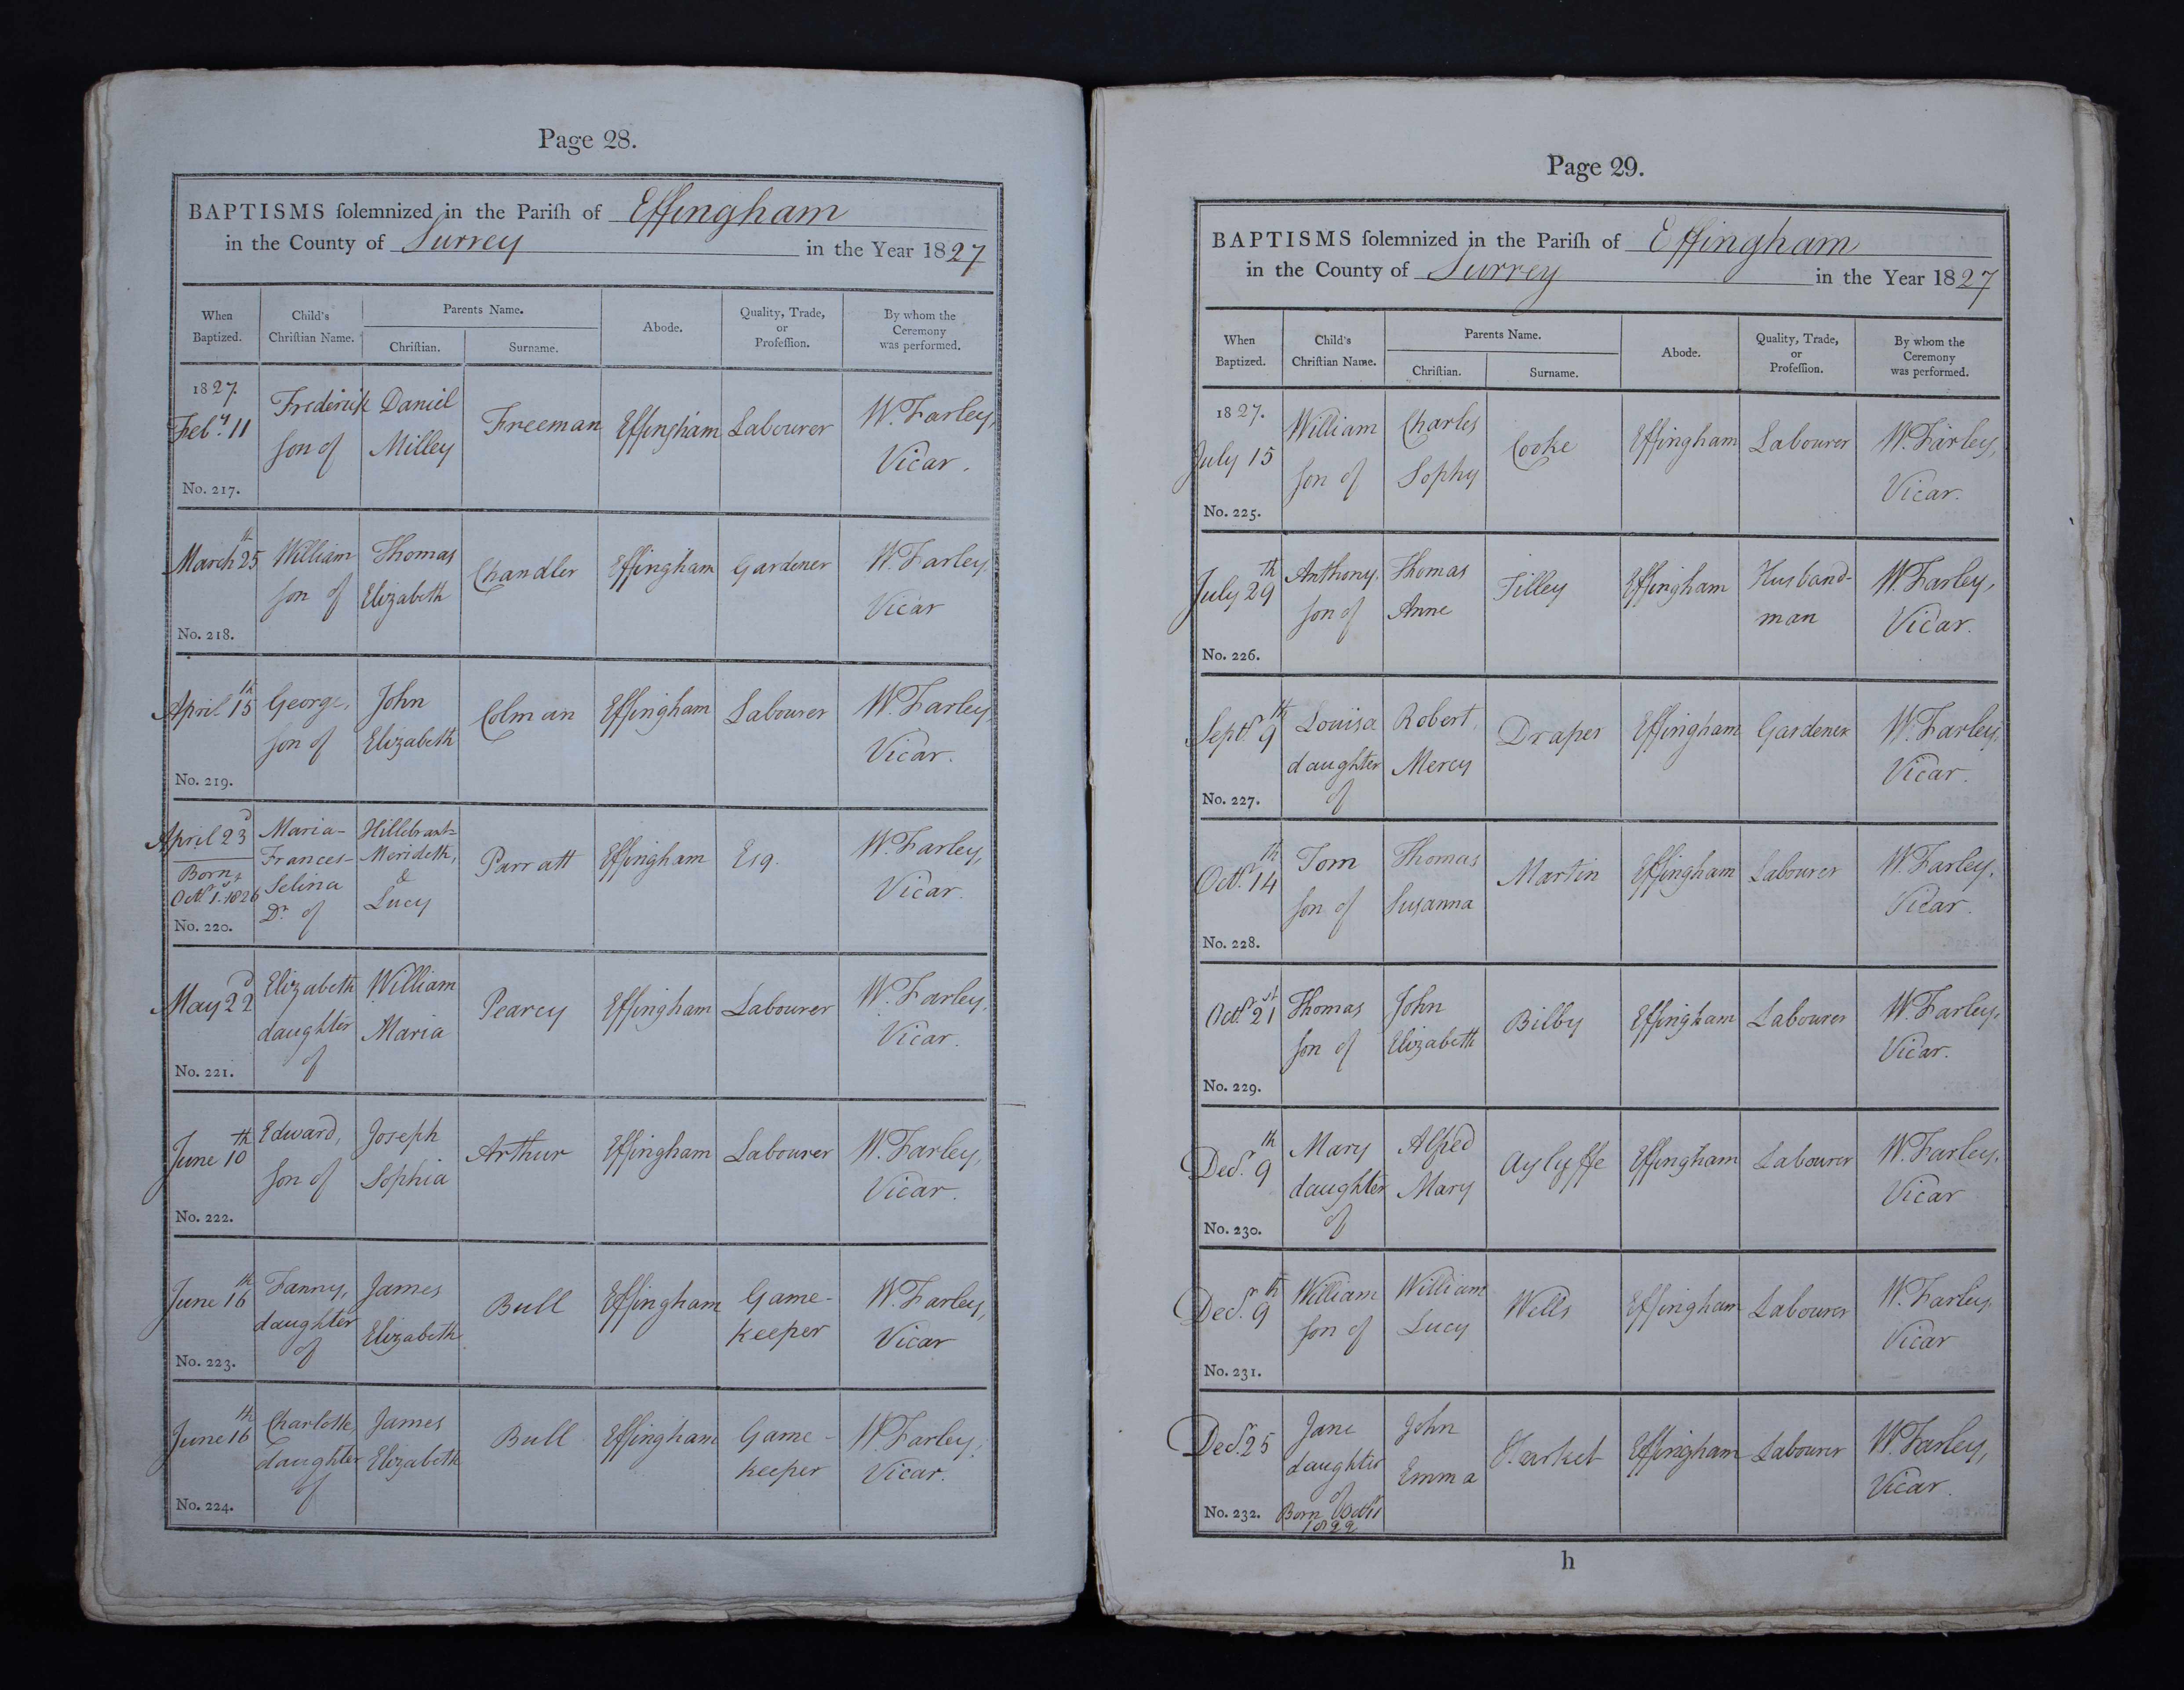 Page 28.
BAPTISMS ſolemnized in the Pariſh of Effingham
in the County of Surrey in the Year 1827
When Baptized.
Child's Chriſtian Name.
Parents Name.
Chriſtian.
Surname.
Abode.
Quality, Trade, or Profeſſion.
By whom the Ceremony was performed.
1827.
Feby. 11
No. 217.
Frederick
son of
Daniel
Milley
Freeman
Effingham
Labourer
W. Farley,
Vicar.
March 25th
No. 218.
William
son of
Thomas
Elizabeth
Chandler
Effingham
Gardener
W. Farley,
Vicar
April 15th
No. 219.
George,
son of
John
Elizabeth
Colman
Effingham
Labourer
W. Farley,
Vicar.
April 23d
Born
Octr 1st 1826
No. 220.
Maria-
Frances-
Selina
Dr. of
Hillebrant=
Merideth,
&
Lucy
Parratt
Effingham
Esq.
W. Farley,
Vicar.
May 22d
No. 221.
Elizabeth
daughter
of
William
Maria
Pearcy
Effingham
Labourer
W. Farley,
Vicar.
June 10th
No. 222.
Edward,
son of
Joseph
Sophia
Arthur
Effingham
Labourer
W. Farley,
Vicar.
June 16th
No. 223.
Fanny,
daughter
of
James
Elizabeth
Bull
Effingham
Game-
keeper
W. Farley,
Vicar
June 16th
No. 224.
Charlotte,
daughter
of
James
Elizabeth
Bull
Effingham
Game-
keeper
W. Farley,
Vicar.
Page 29.
BAPTISMS ſolemnized in the Pariſh of Effingham
in the County of Surrey in the Year 1827
When Baptized.
Child's Chriſtian Name.
Parents Name.
Chriſtian.
Surname.
Abode.
Quality, Trade, or Profeſſion.
By whom the Ceremony was performed.
1827.
July 15
No. 225.
William
son of
Charles
Sophy
Cooke
Effingham
Labourer
W. Farley,
Vicar.
July 29th
No. 226.
Anthony.
son of
Thomas
Anne
Tilley
Effingham
Husband-
man
W. Farley,
Vicar.
Septr. 9th
No. 227.
Louisa
daughter
of
Robert,
Mercy
Draper
Effingham
Gardener
W. Farley,
Vicar.
Octr. 14th
No. 228.
Tom
son of
Thomas
Susanna
Martin
Effingham
Labourer
W. Farley,
Vicar.
Octr. 21st
No. 229.
Thomas
son of
John
Elizabeth
Bilby
Effingham
Labourer
W. Farley,
Vicar.
Decr. 9th
No. 230.
Mary
daughter
of
Alfred
Mary
Aylyffe
Effingham
Labourer
W. Farley,
Vicar
Decr. 9th
No. 231.
William
son of
William
Lucy
Wells
Effingham
Labourer
W. Farley,
Vicar
Decr. 25
No. 232.
Jane
daughter
of
Born
John
Emma
Effingham
Labourer
W. Farley,
Vicar.
h